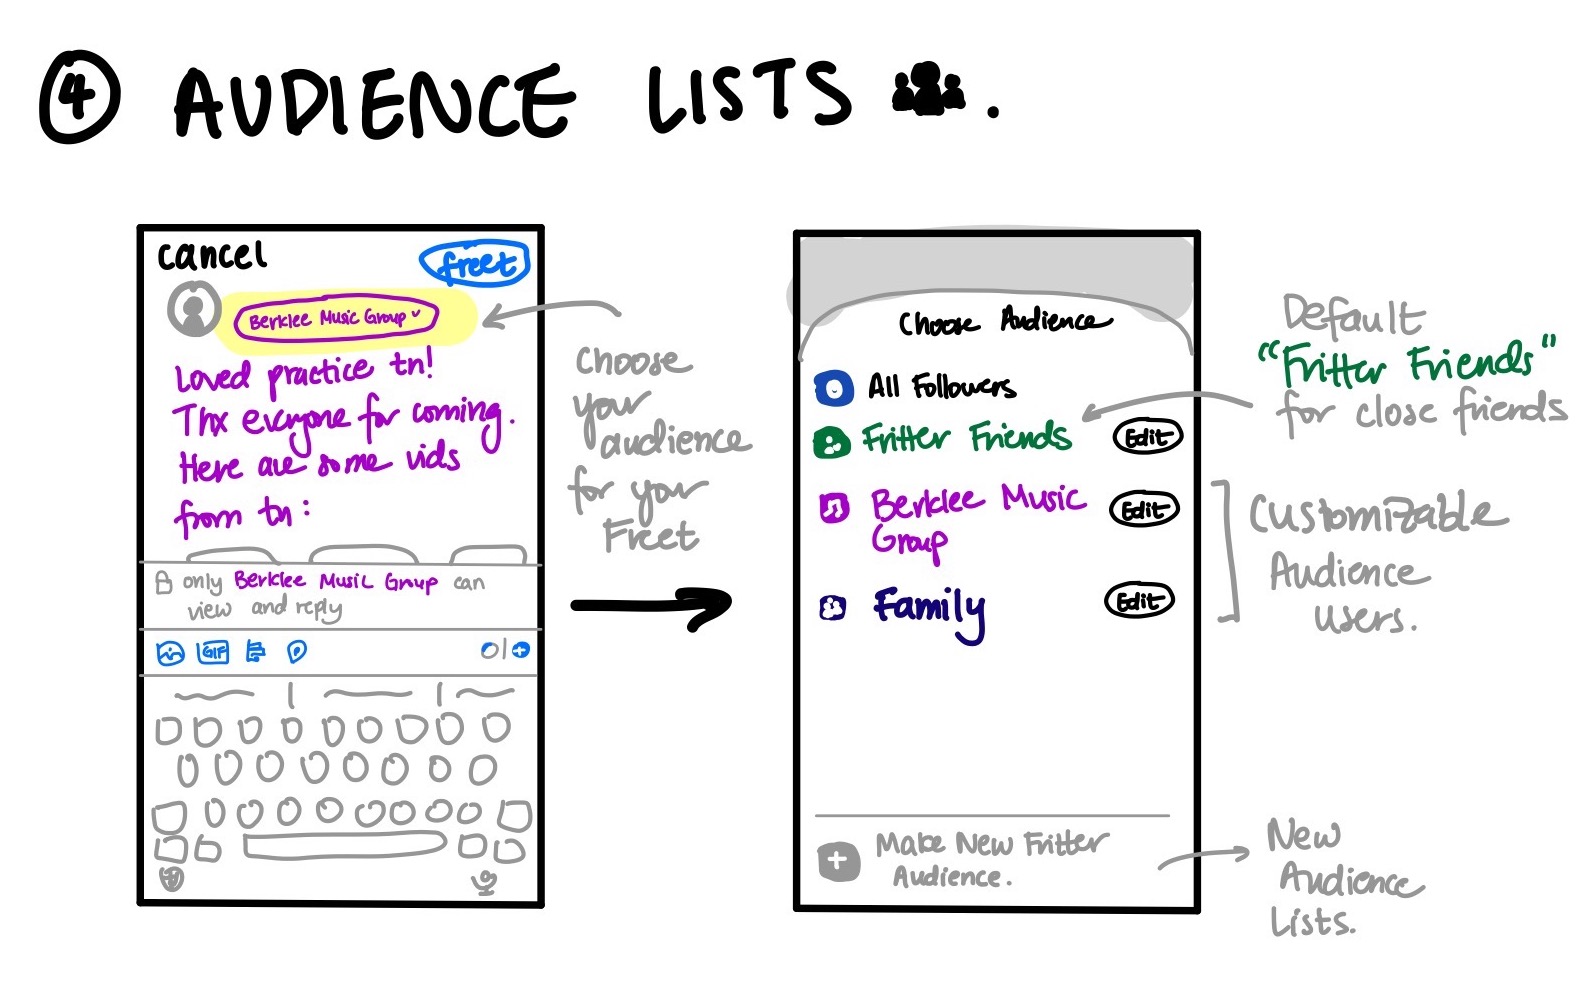 4 AUDIENCE LISTS .
cancel
freet
Berklee Music Group
Loved practice tn!
Thx everyone for coming.
Here are some vids
from tn:
only Berklee Music Group can
view and reply
GIF
Choose
your
audience
for your
Freet
Choose Audience
All Followers
Fritter Friends
Edit
Berklee Music
Group
Edit
Family
Edit
Make New Fritter
Audience.
Default
"Fritter Friends"
for close friends
Customizable
Audience
Users.
New
Audience
Lists.